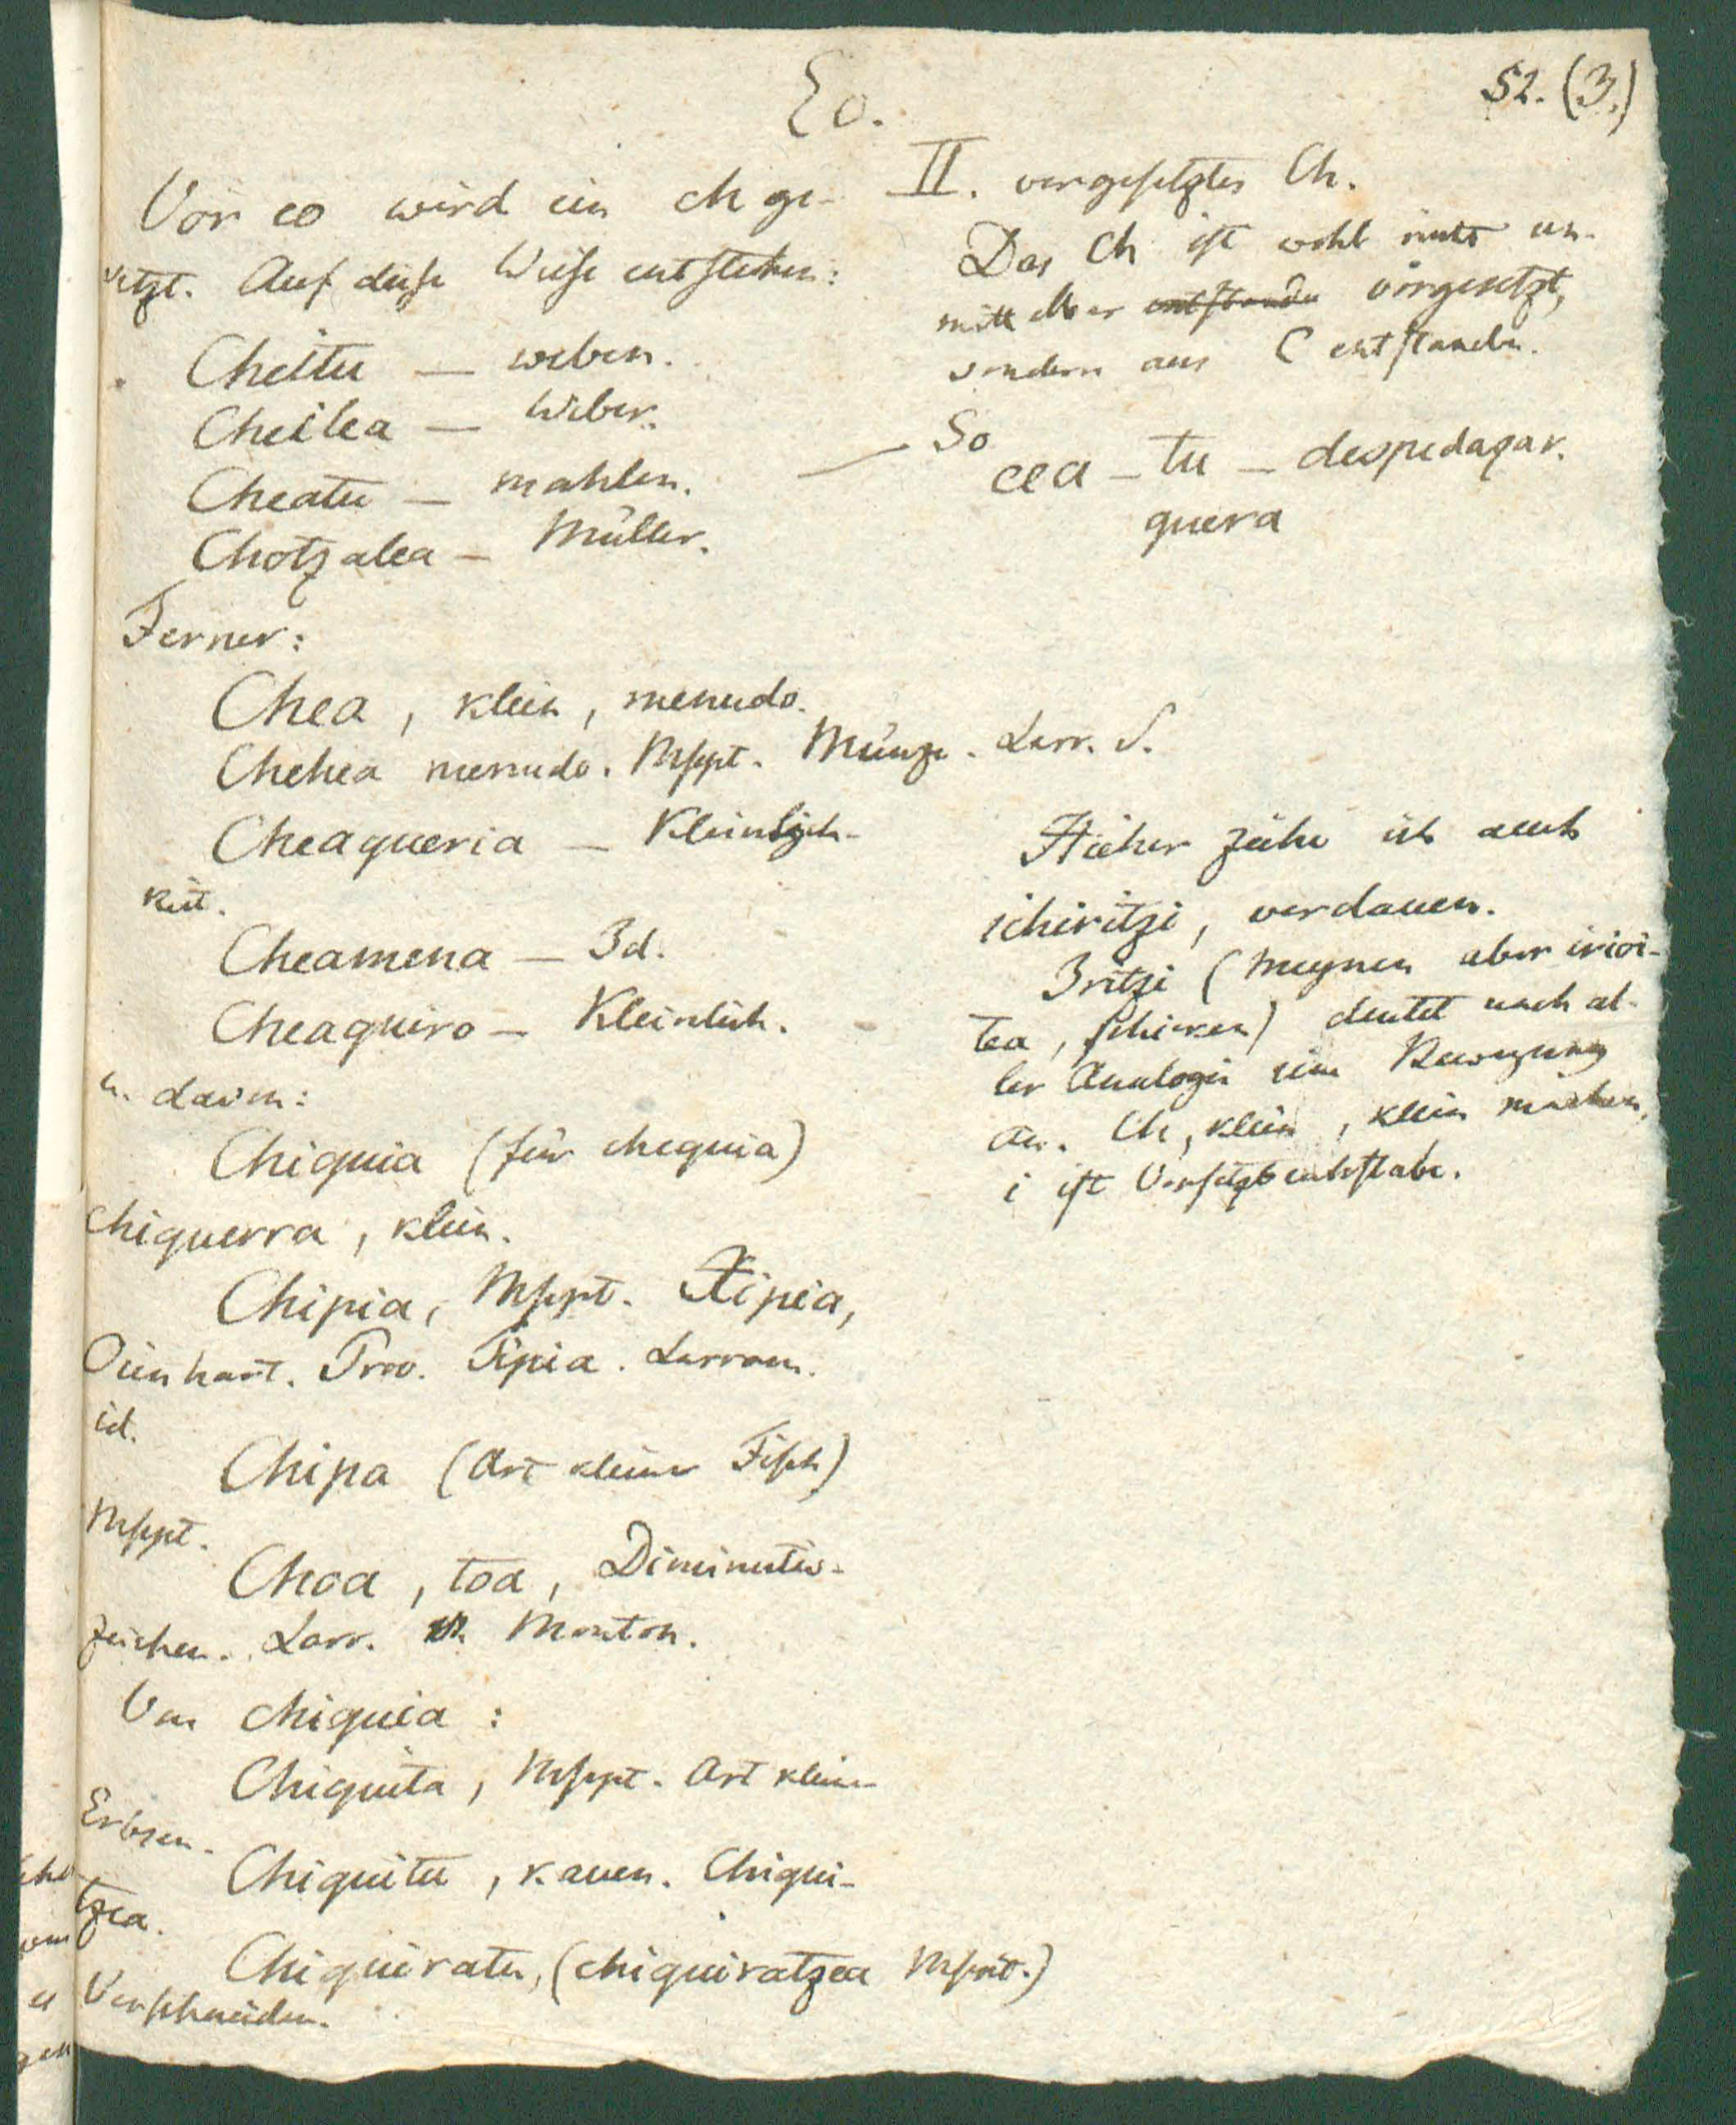 Eo.
52. (3.)
Vor eo wird ein ch ge-
setzt. Auf diese Weise entstehen:
Cheitu — weben.
Cheilea — Weber.
Cheatu — mahlen.
Chotzalea — Müller.
Ferner:
Chea, klein, menudo.
Chehea menudo. Mspt. Münze. Larr. S.
Cheaqueria — Kleinlich-
keit.
Cheamena — Id.
Cheaquiro — Kleinlich.
u. davon:
Chiquia (für chequia)
chiquerra, klein.
Chipia, Mspt. Ttipia,
Oienhart. Prov. Tipia. Larram.
id.
Chipa (Art kleiner Fisch)
Mspt.
Choa, toa, Diminutiv-
zeichen. Larr. Monton.
Von chiquia:
Chiquita, Mspt. Art kleiner
Erbsen.
Chiquitu, kauen. Chiqui-
tzea.
Chiquiratu, (chiquiratzea Mspt.)
Verschneiden.
II. vorgesetztes Ch.
Das Ch ist wohl nicht un-
mittelbar entstanden vorgesetzt,
sondern aus C entstanden.
— So
cea-tu — despedaçar.
quera
Hieher ziehe ich auch
ichiritzi, verdauen.
Iritzi (meynen aber irioi-
tea, schicken) deutet nach al-
ler Analogie eine Bewegung
an. Ch, klein, klein machen,
i ist Vorsetzbuchstabe.